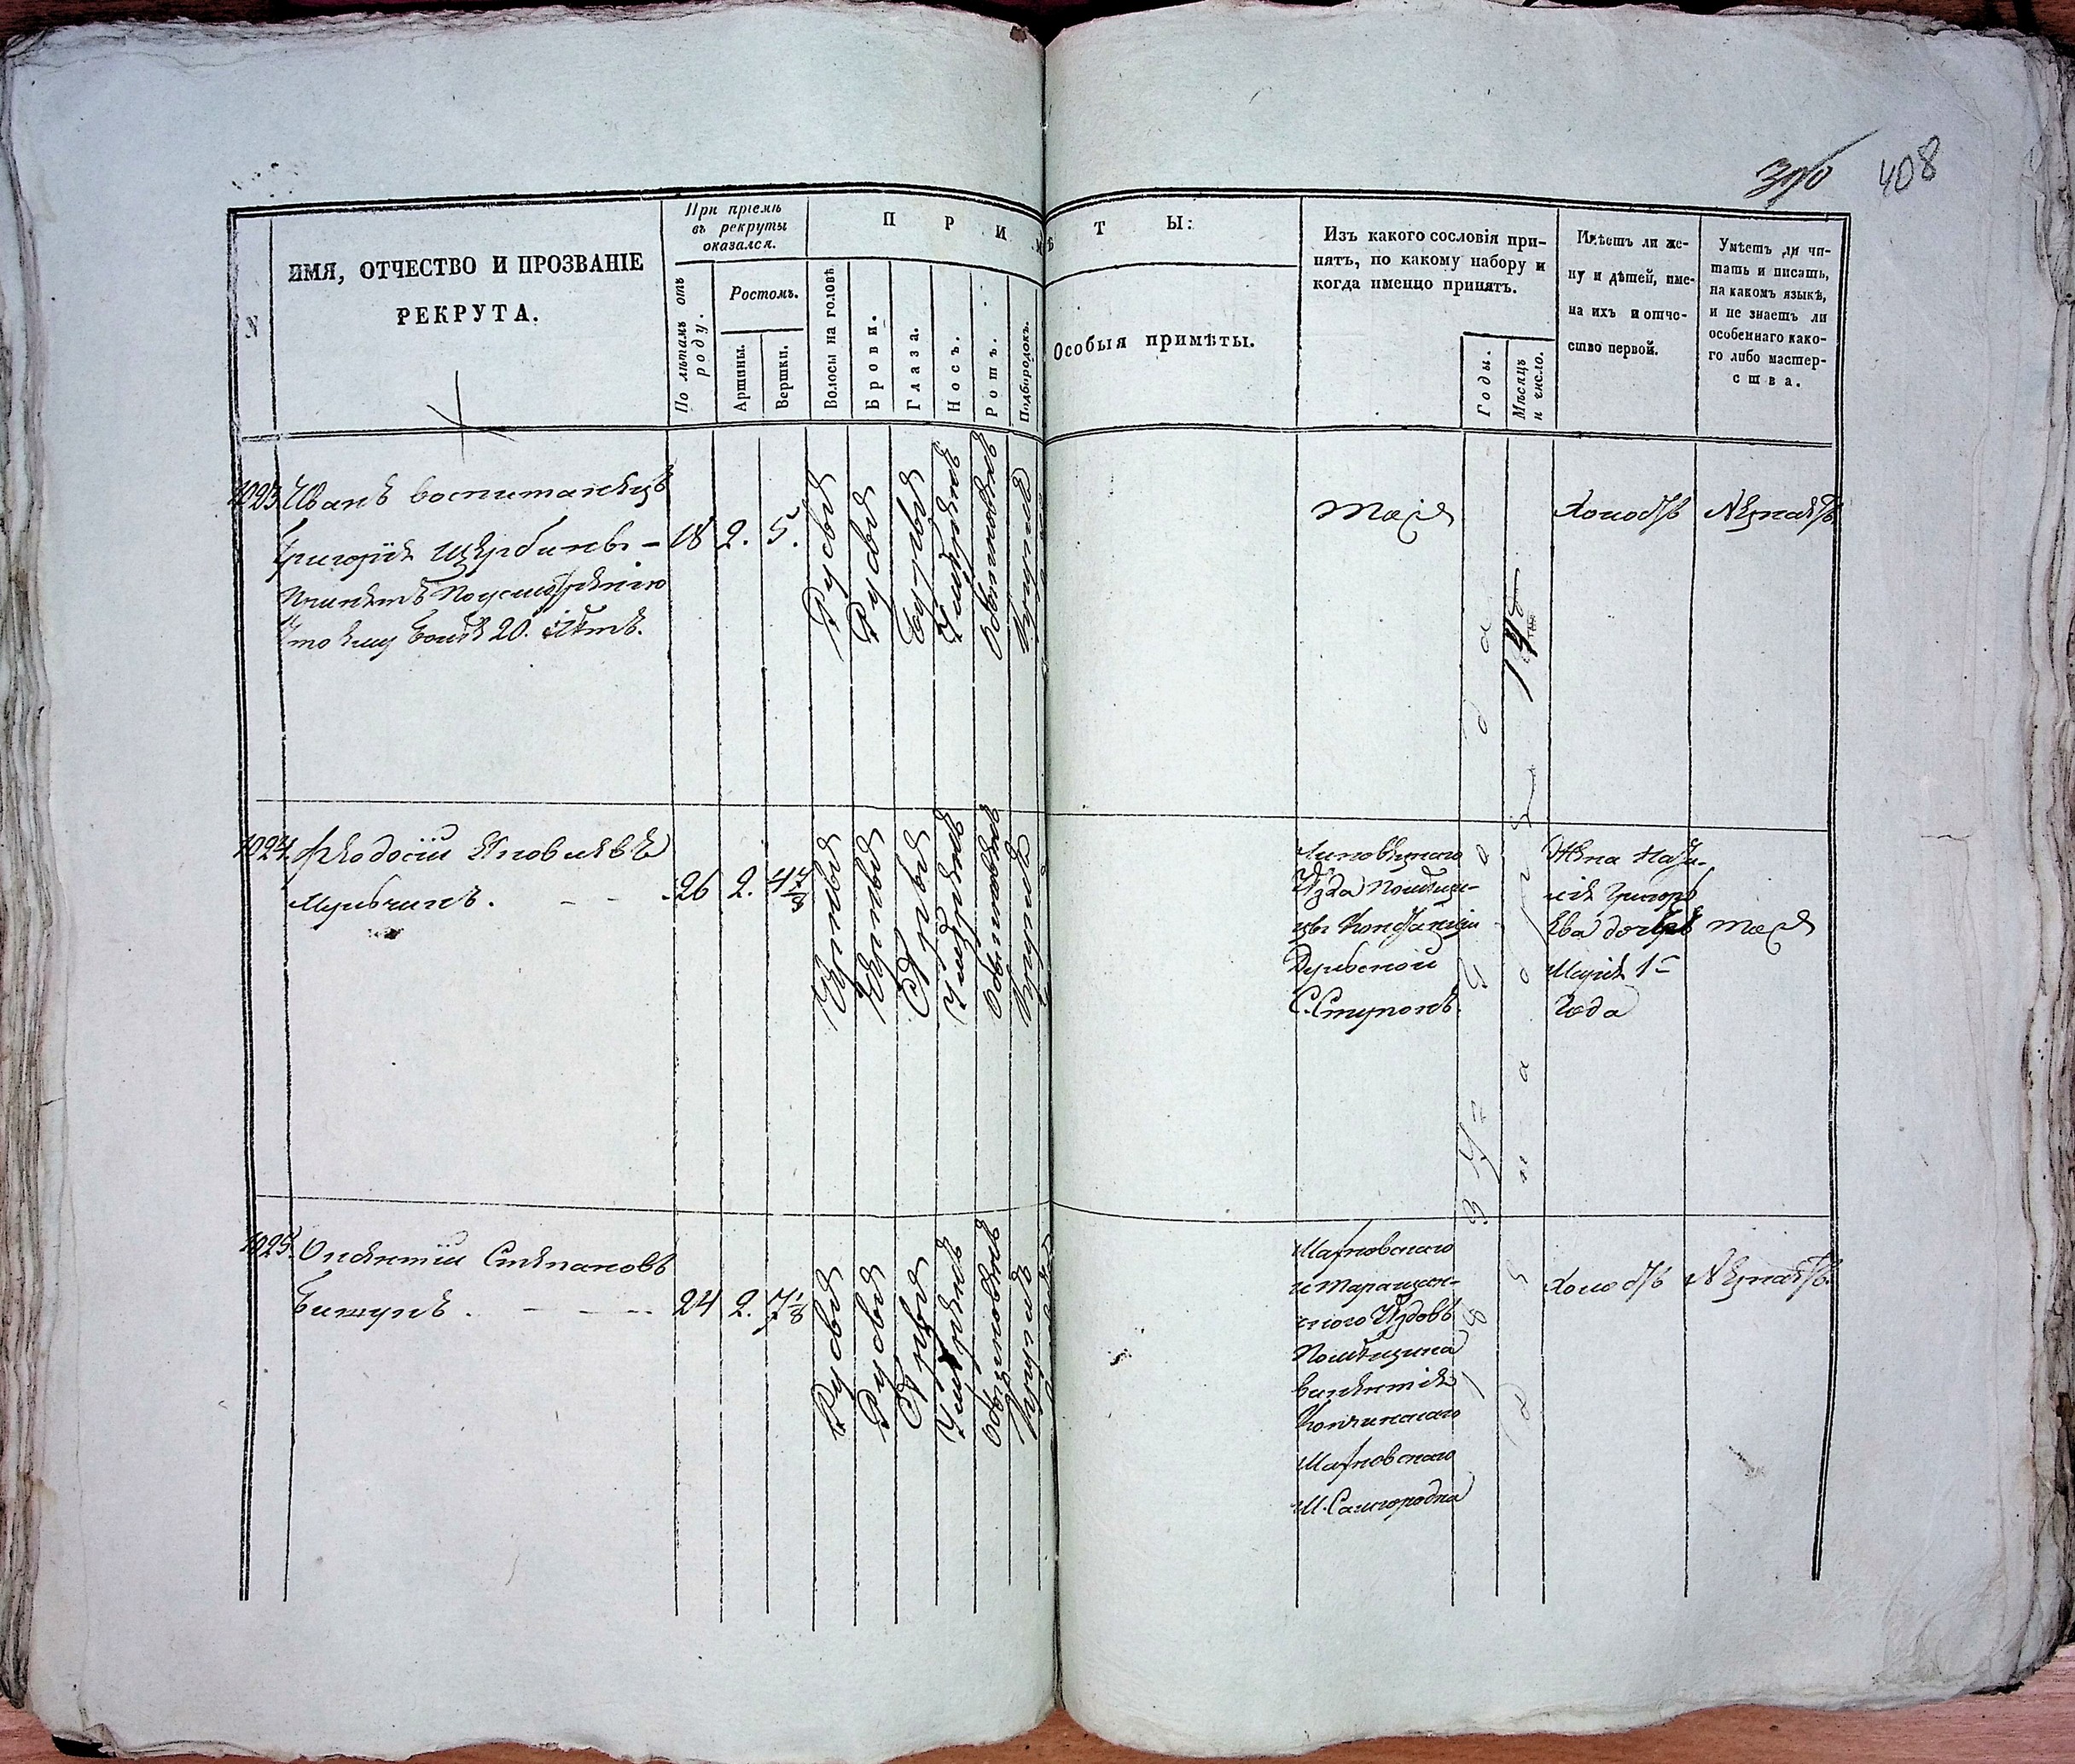 408
N
ИМЯ, ОТЧЕСТВО И ПРОЗВАНІЕ
РЕКРУТА.
При пріемѣ
въ рекруты
оказался.
По лѣтамъ отъ
роду.
Ростомъ.
Аршины.
Вершки.
П Р И М Ѣ Т Ы:
Волосы на головѣ.
Брови.
Глаза.
Носъ.
Ротъ.
Подбородокъ.
Особыя примѣты.
Изъ какого сословія при-
нятъ, по какому набору и
когда именно принятъ.
Годы.
Мѣсяцъ
и число.
Имѣетъ ли же-
ну и дѣтей, име-
на ихъ и отче-
ство первой.
Умѣетъ ли чи-
тать и писать,
на какомъ языкѣ,
и не знаетъ ли
особеннаго како-
го либо мастер-
ства.
1023 Иванъ воспитанецъ
Григорія Щербины –
Принятъ По усмотрѣнію
что ему болѣе 20. лѣтъ.
18 2. 5.
Русыя
Русыя
Умѣренъ
Обыкновенъ
Круглый
Тоже
Холостъ
Незнаетъ
1024. Феодосій Яковлевъ
26 2. 4 7/8
Сѣрыя
Умѣренъ
Обыкновенъ
Круглый
Липовецкаго
Уѣзда Помѣщи-
цы Констанціи
С. Ступокъ.
Жена Ната-
лія Григорь
ева дочь
Марія 1-
года
Тоже
1025. Степановъ
24 2. 7 1/8
Русыя
Русыя
Сѣрыя
Умѣренъ
Обыкновенъ
Круглый
и Таращан-
скаго Уѣздовъ
Помѣщика
Викентія
М. Самгородка
Холостъ
Незнаетъ